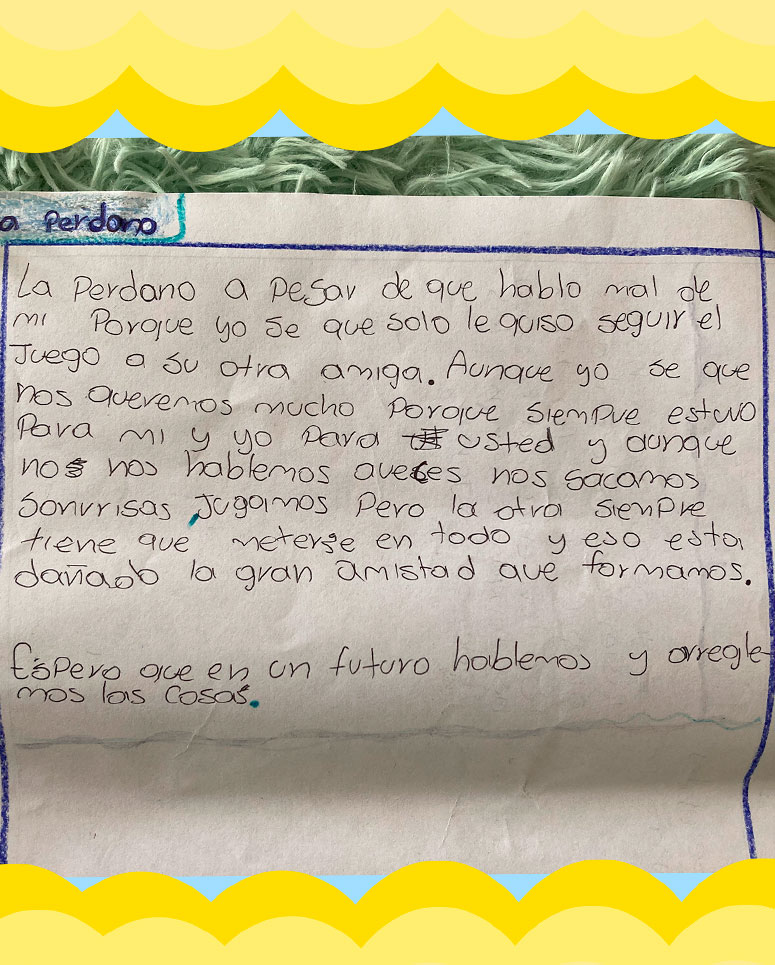 a Perdono
La Perdono a pesar de que hablo mal de
mi Porque yo se que solo le quiso seguir el
Juego a su otra amiga. Aunque yo se que
nos queremos mucho Porque siempre estuvo
Para mi y yo para usted y aunque
no nos hablemos aveces nos sacamos
sonrrisas, Jugamos Pero la otra siempre
tiene que meterse en todo y eso esta
dañado la gran amistad que formamos.
Espero que en un futuro hablemos y arregle-
mos las cosas.